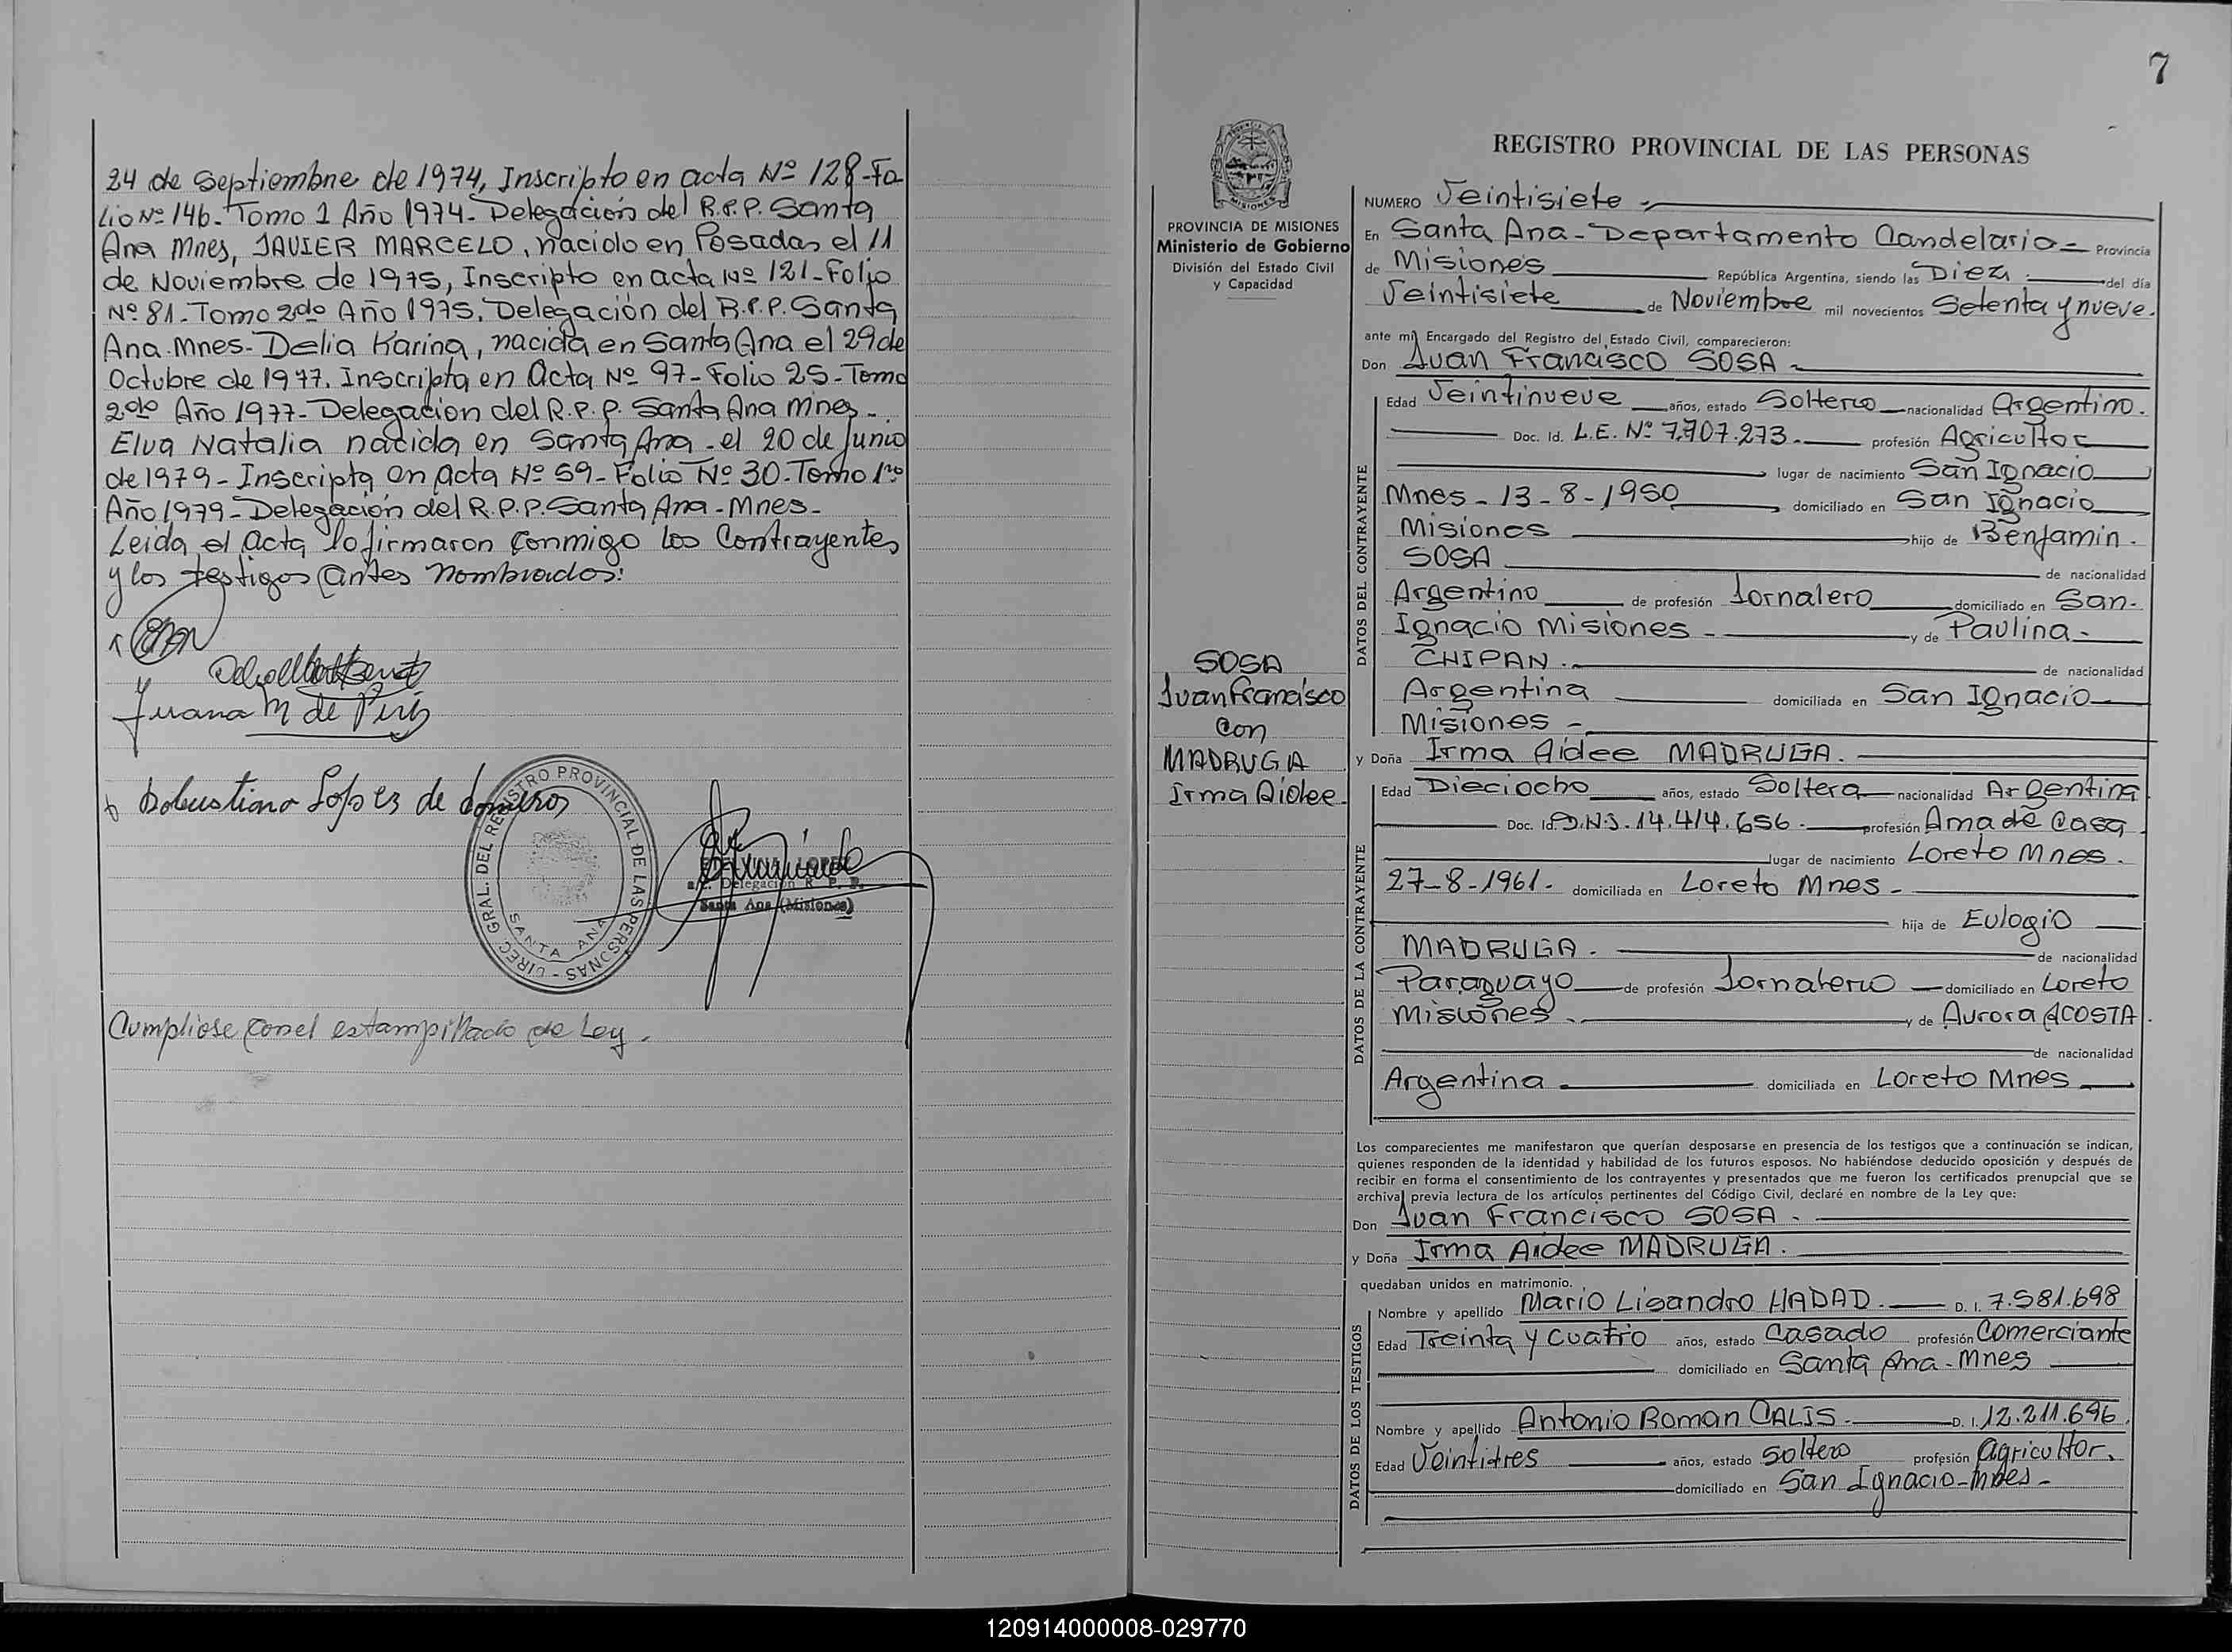 24 de Septiembre de 1974, Inscripto en acta Nº 128-Fo
lio Nº 146- Tomo 1 Año 1974- Delegación del R.P.P. Santa
Ana Mnes, JAVIER MARCELO, nacido en Posadas el 11
de Noviembre de 1975, Inscripto en acta Nº 121- Folio
Nº 81- Tomo 2do Año 1975. Delegación del R.P.P. Santa
Ana-Mnes- Delia Karina, nacida en Santa Ana el 29 de
Octubre de 1977. Inscripta en Acta Nº 97- Folio 25- Tomo
2do Año 1977- Delegacion del R.P.P. Santa Ana Mnes-
Elva Natalia nacida en Santa Ana - el 20 de Junio
de 1979- Inscripta en acta Nº 59- Folio Nº 30- Tomo 1ro
Año 1979- Delegación del R.P.P. Santa Ana-Mnes-
Leida el acta lo firmaron conmigo los Contrayentes
y los testigos antes Nombrados:
Juana M de
Lopez de
DIREC. GRAL. DEL REGISTRO PROVINCIAL DE LAS PERSONAS -
SANTA ANA
LOPEZ
Delegación R. P. P.
Santa Ana (Misiones)
Cumpliose con el estampillado de Ley.
7
REGISTRO PROVINCIAL DE LAS PERSONAS
MISIONES
PROVINCIA DE MISIONES
Ministerio de Gobierno
División del Estado Civil
y Capacidad
SOSA
Juan Francisco
Con
MADRUGA
Irma Aidee
NUMERO Veintisiete
En Santa Ana - Departamento Candelaria - Provincia
de Misiones República Argentina, siendo las Diez del día
Veintisiete de Noviembre mil novecientos Setenta y nueve.
ante mí, Encargado del Registro del Estado Civil, comparecieron:
Don Juan Francisco SOSA -
DATOS DEL CONTRAYENTE
Edad Veintinueve años, estado Soltero nacionalidad Argentino.
Doc. Id. L.E. Nº 7.707.273.- profesión Agricultor
lugar de nacimiento San Ignacio
Mnes - 13-8-1950 domiciliado en San Ignacio
Misiones hijo de Benjamin.
SOSA de nacionalidad
Argentino de profesión Jornalero domiciliado en San-
Ignacio Misiones - y de Paulina-
CHIPAN.- de nacionalidad
Argentina domiciliada en San Ignacio
Misiones -
y Doña Irma Aidee MADRUGA.
DATOS DE LA CONTRAYENTE
Edad Dieciocho años, estado Soltera nacionalidad Argentina
Doc. Id. D.N.I. 14.414.656.- profesión Ama de Casa
lugar de nacimiento Loreto Mnes.
27-8-1961. domiciliada en Loreto Mnes -
hija de Eulogio
MADRUGA. de nacionalidad
Paraguayo de profesión Jornalero domiciliado en Loreto
Misiones. y de Aurora ACOSTA.
de nacionalidad
Argentina domiciliada en Loreto Mnes
Los comparecientes me manifestaron que querían desposarse en presencia de los testigos que a continuación se indican,
quienes responden de la identidad y habilidad de los futuros esposos. No habiéndose deducido oposición y después de
recibir en forma el consentimiento de los contrayentes y presentados que me fueron los certificados prenupcial que se
archiva, previa lectura de los artículos pertinentes del Código Civil, declaré en nombre de la Ley que:
Don Juan Francisco SOSA -
y Doña Irma Aidee MADRUGA.
quedaban unidos en matrimonio.
DATOS DE LOS TESTIGOS
Nombre y apellido Mario Lisandro HADAD. D. I. 7.581.698
Edad Treinta y cuatro años, estado Casado profesión Comerciante
domiciliado en Santa Ana-Mnes
Nombre y apellido Antonio Roman CALIS. D. I. 12.211.696
Edad Veintitres años, estado Soltero profesión agricultor.
domiciliado en San Ignacio-Mnes-
120914000008-029770